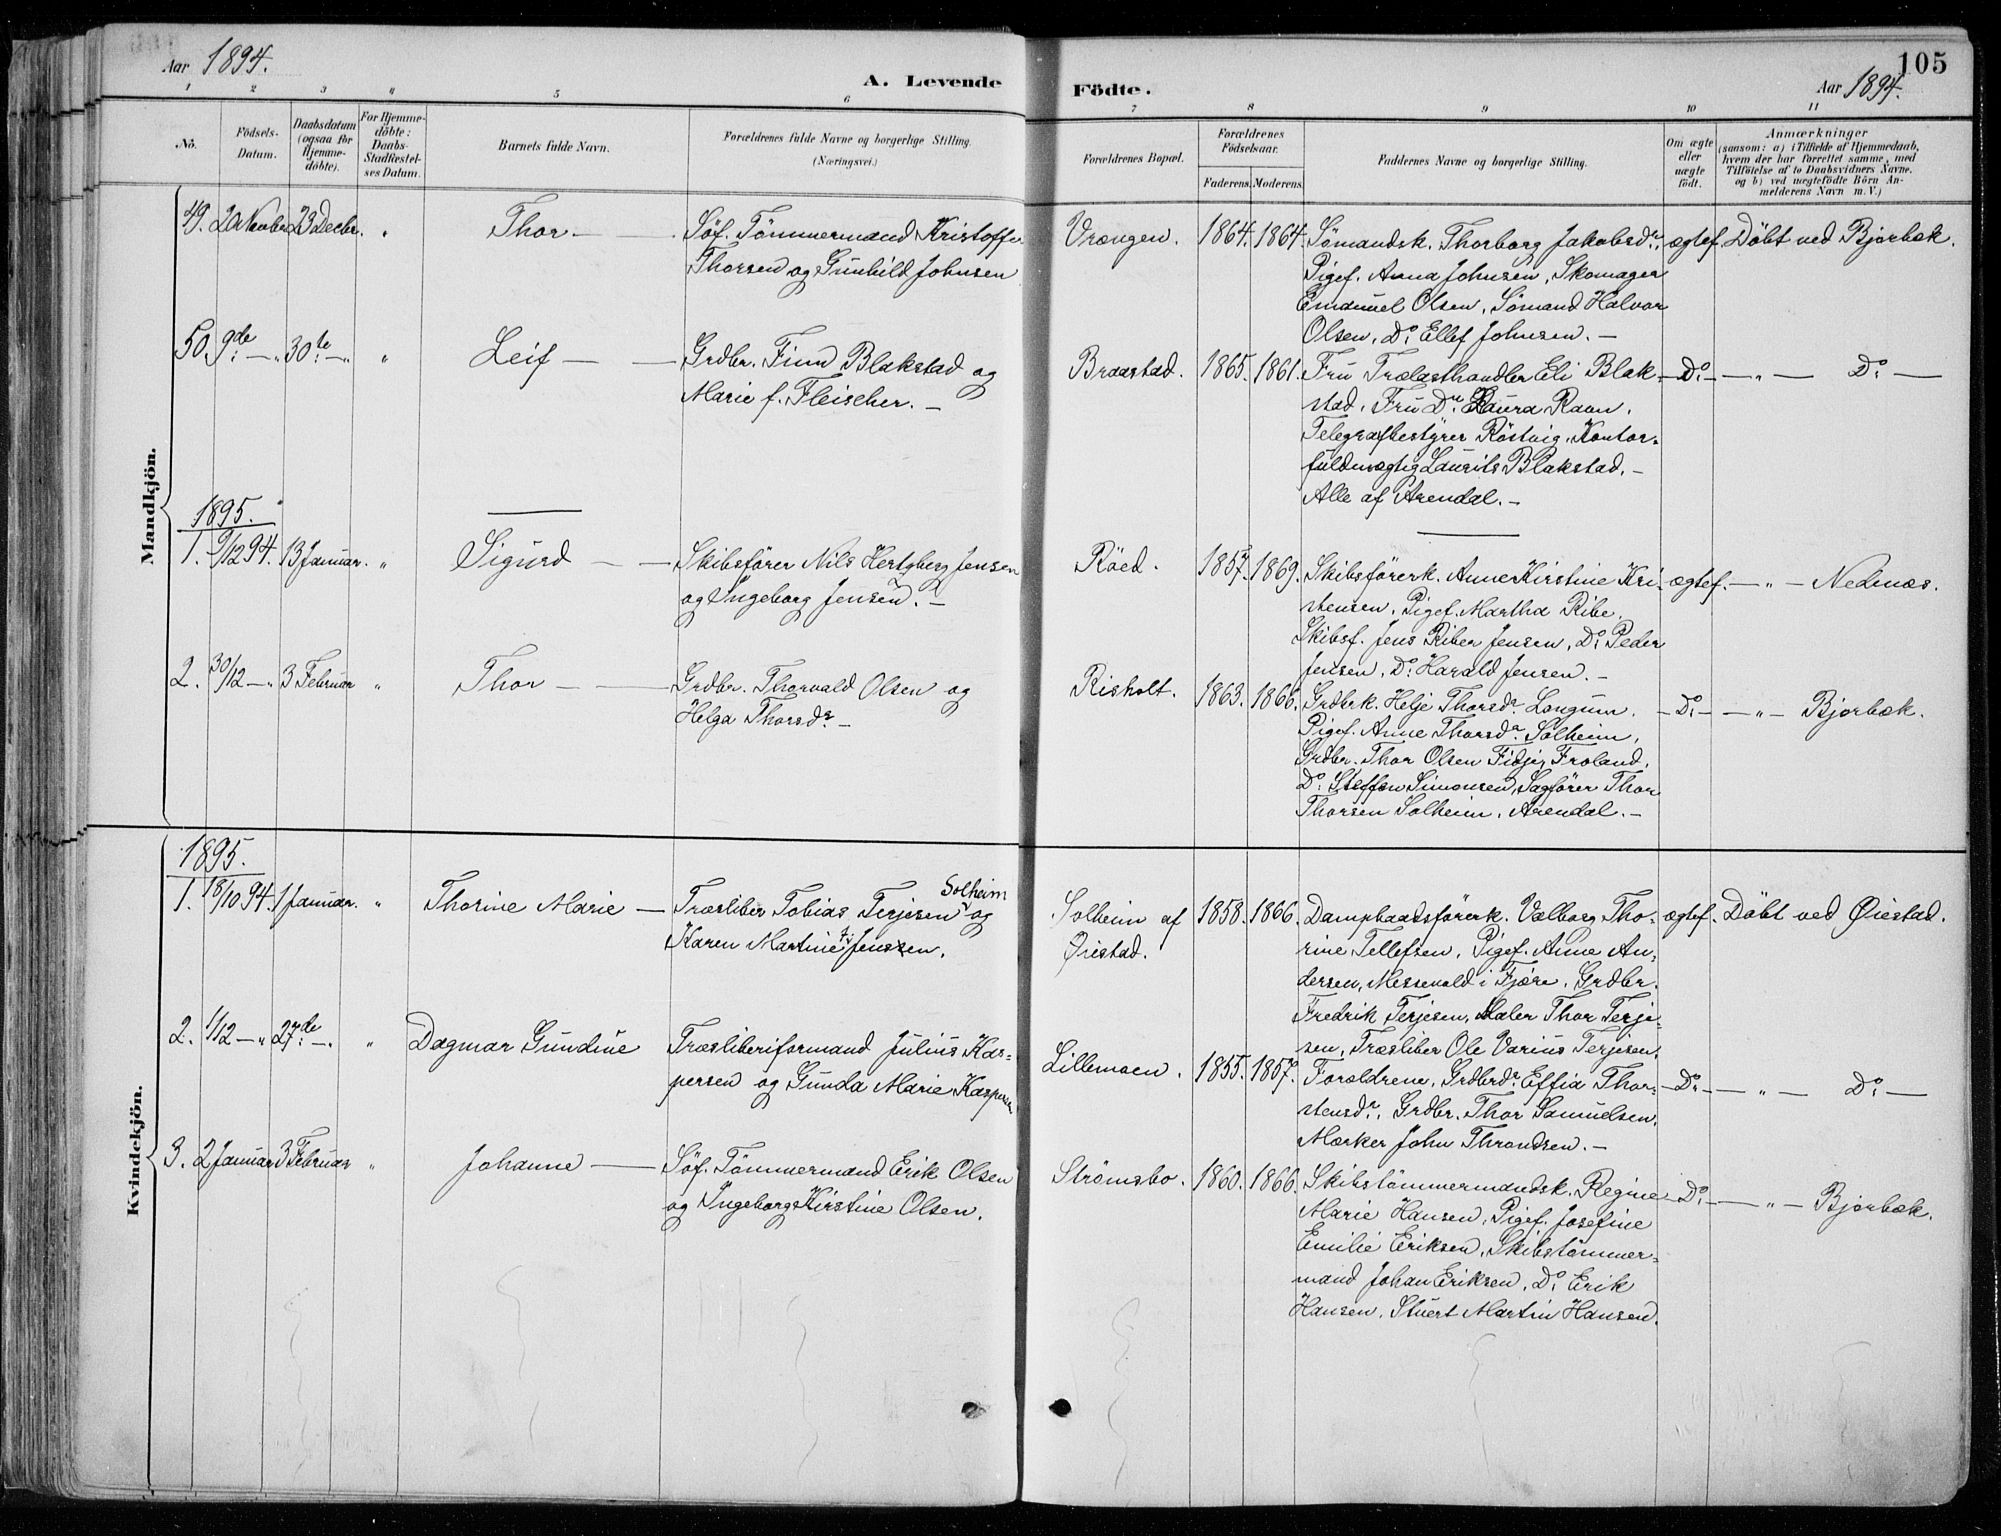 105
Aar 1894.
A. Levende Födte.
Aar 1894.
1 2 3 " 5 6 7 8 9 10 11
No.
Födsels-
Datum.
Daabsdatum
(ogsaa for
Hjemme-
döbte).
For Hjemme-
döbte:
Daabs-
Stadfæstel-
ses Datum.
Barnets fulde Navn.
Forældrenes fulde Navne og borgerlige Stilling.
(Næringsvei.)
Forældrenes Bopæl.
Forældrenes
Födselsaar.
Faderens. Moderens.
Faddernes Navne og borgerlige Stilling.
Om ægte
eller
uægte
födt.
Anmærkninger
(saasom: a) i Tilfælde af Hjemmedaab,
hvem der har forrettet samme, med
Tilföielse af to Daabsvidners Navne.
og b) ved uægtefödte Börn An-
melderens Navn m. V.)
Mandkjön.
49. Novbr. 23 Decbr. " Thor —
Söf. Tömmermand Kristoffer
Thorsen og Gunhild Johnsen
Vrængen. 1864. 1864.
Sömandsk. Thorborg Jakobsdr.,
Pigef. Anna Johnsen, Skomager
Emanuel Olsen, Sömand Halvor
Olsen, Do. Ellef Johnsen. —
ægtef. Döbt ved Bjorbæk.
50. 9de — " 30te — " " Leif — —
Grdbr. Finn Blakstad og
Marie f. Fleischer. —
Braastad. 1865. 1861.
Fru Trælasthandler Eli Blak-
stad, Fru Do. Laura Ravn,
Telegrafbestyrer Röstvig, Kontor-
fuldmægtig Laurits Blakstad. —
Alle af Arendal. —
— Do. — — " — Do. —
1895.
1. 9/12 94. 13 Januar. " Sigurd — —
Skibsförer Nils Hertzberg Jensen
og Ingeborg Jensen. —
Röed. 1857. 1869.
Skibsförerk. Anne Kirstine Kri-
stensen, Pigef. Martha Ribe,
Skibsf. Jens Riber Jensen, Do. Peder
Jensen, Do. Harald Jensen. —
ægtef. — " — Nedenæs.
2. 30/12 — " 3 Februar " Thor — —
Grdbr. Thorvald Olsen og
Helga Thorsdr. —
Risholt. 1863. 1866.
Grdbrk. Helje Thorsdr. Longum.
Pigef. Anne Thorsdr. Solheim,
Grdbr. Thor Olsen Fidje, Froland,
Do. Steffen Simonsen, Sagförer Thor
Thorsen Solheim, Arendal. —
— Do. — — " — Bjorbæk.
Kvindekjön.
1895.
1. 18/10 94. 1 Januar. " Thorine Marie —
Træsliber Tobias Terjesen Solheim og
Karen Martine Jenssen.
Solheim af
Öiestad.
1858. 1866.
Dampbaadsförerk. Valborg Tho-
rine Tellefsen, Pigef. Anne An-
dersen, Messevold i Fjære, Grdbr.
Fredrik Terjesen, Maler Thor Terje-
sen, Træsliber Ole Varius Terjesen.
ægtef. Döbt ved Öiestad.
2. 1/12 — " 27de — " " Dagmar Gundine
Træsliberiformand Julius Kas-
persen og Gunda Marie Kaspersen
Lillemoen. 1855. 1857.
Forældrene, Grdbrdr. Effia Thor-
stensdr., Grdbr. Thor Samuelsen,
Mærker John Throndsen. —
— Do. — — " — Do. —
3. 2 Januar 3 Februar " Johanne —
Söf. Tömmermand Erik Olsen
og Ingeborg Kirstine Olsen.
Strömsbo. 1860. 1866.
Skibstömmermandsk. Regine
Marie Hansen, Pigef. Josefine
Emilie Eriksen, Skibstömmer-
mand Johan Eriksen, Do. Erik
Hansen, Stuert Martin Hansen.
— Do. — — " — Bjorbæk.